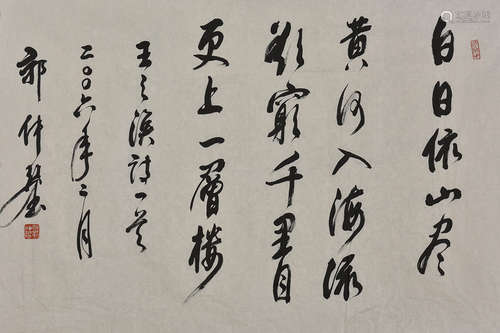 白日依山尽
黄河入海流
欲穷千里目
更上一层楼
王之涣诗一首
二〇〇六年二月
郭仲